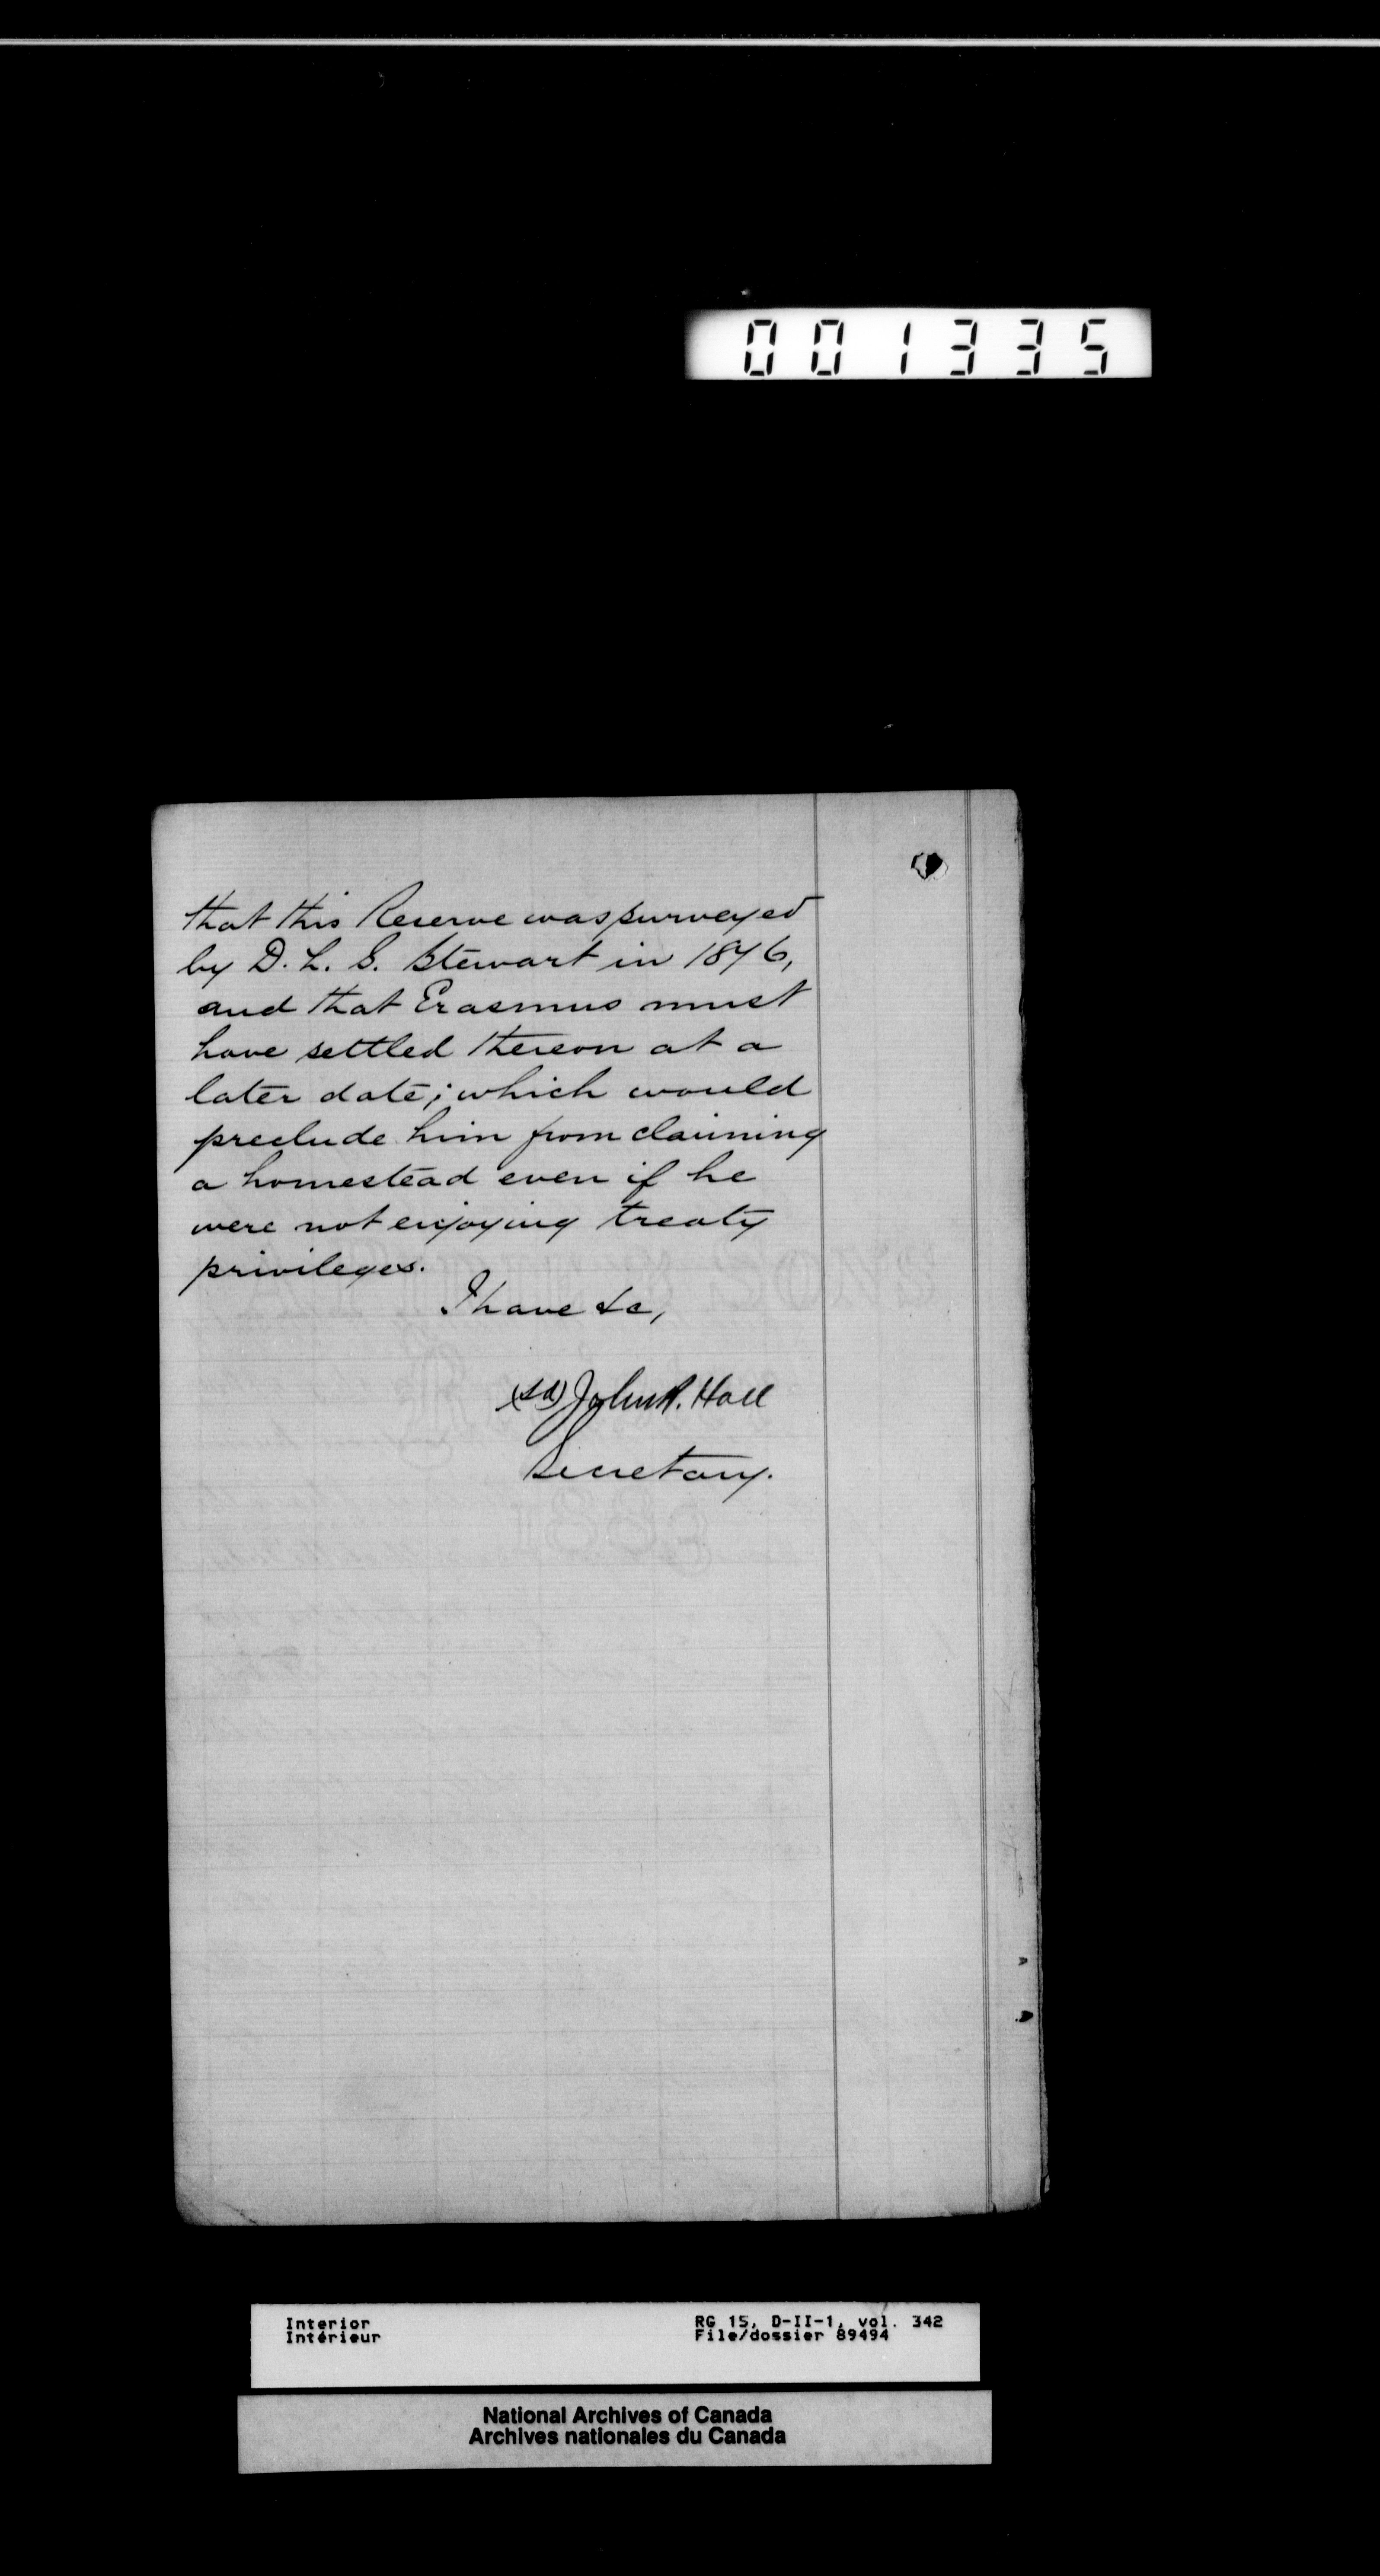 001335
that this Reserve was surveyed
by D. L. S. Stewart in 1876,
and that Erasmus must
have settled thereon at a
later date; which would
preclude him from claiming
a homestead even if he
were not enjoying treaty
privileges.
I have &c,
(sd) John R. Hall
Secretary.
Interior
Intérieur
RG 15, D-II-1, vol. 342
File/dossier 89494
National Archives of Canada
Archives nationales du Canada